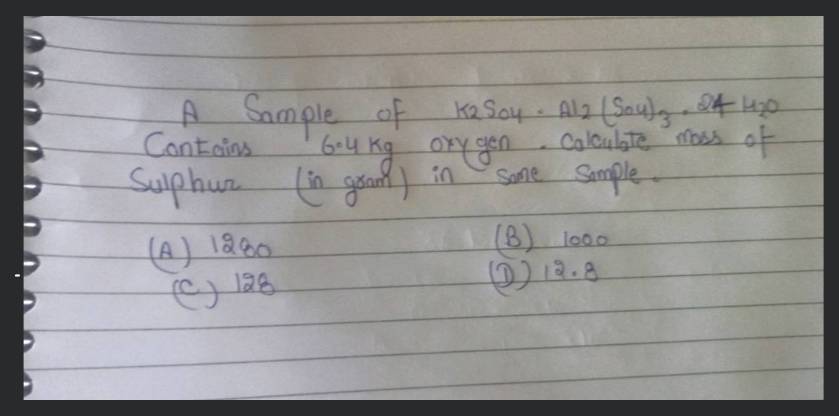 A Sample of K2SO4 . Al2(SO4)3 . 24 H2O
Contains 6.4 Kg oxygen . Calculate mass of
Sulphur (in gram) in same sample.
(A) 1280 (B) 1000
(C) 128 (D) 12.8